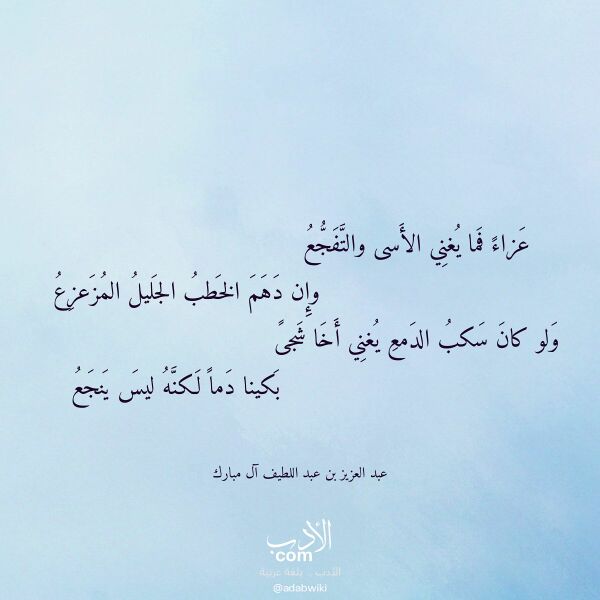 عَزاءً فَما يُغنِي الأَسى والتَّفَجُّعُ
وإِن دَهَمَ الخَطبُ الجَليلُ المُزَعزِعُ
وَلو كانَ سَكبُ الدَمعِ يُغنِي أَخَا شَجىً
بَكينا دَماً لَكنَّهُ ليسَ يَنجَعُ
عبد العزيز بن عبد اللطيف آل مبارك
الأدب
com
الأدب .. بلغة عربية
@adabwiki